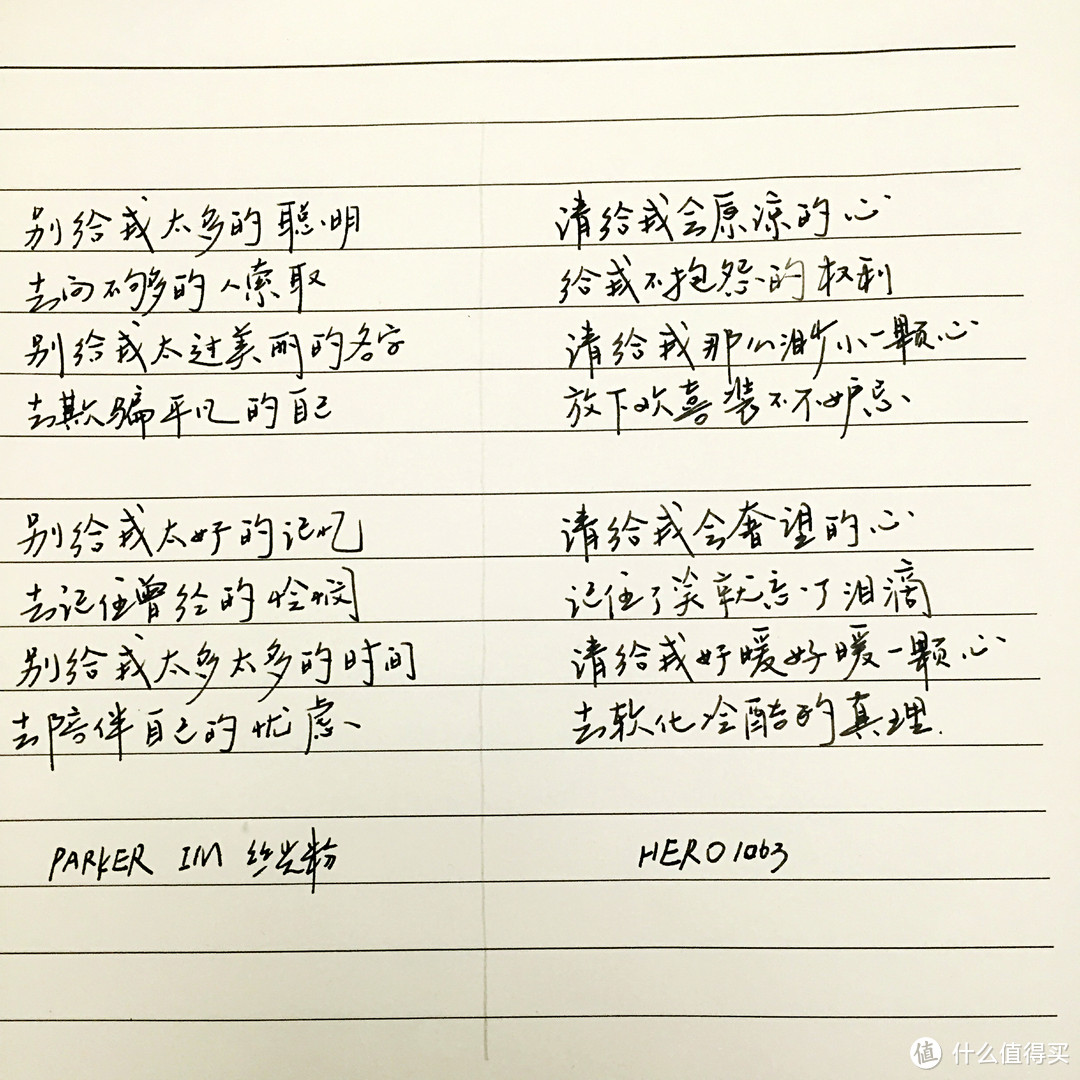 别给我太多的聪明
去向不够多的人索取
别给我太过美丽的名字
去欺骗平凡的自己
别给我太好的记忆
去记住曾给的怜悯
别给我太多太多的时间
去陪伴自己的忧虑
PARKER IM 丝光粉
请给我会原谅的心
给我不抱怨的权利
请给我那么渺小一颗心
放下欢喜装不不妒忌
请给我会奢望的心
记住了笑就忘了泪滴
请给我好暖好暖一颗心
去软化冷酷的真理.
HERO1063
值 什么值得买